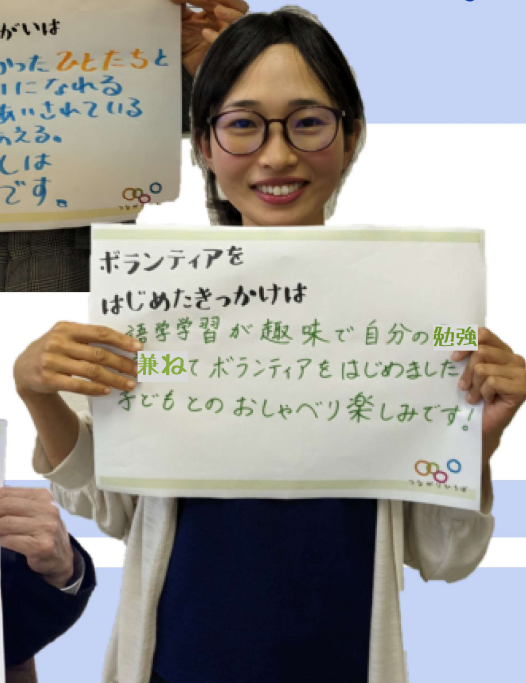 がいは
かった ひとたちと
になれる
あいされている
える。
しは
です。
ボランティアを
はじめたきっかけは
語学学習が趣味で自分の勉強
兼ねてボランティアをはじめました
子どもとのおしゃべり楽しみです!
つながりひろば